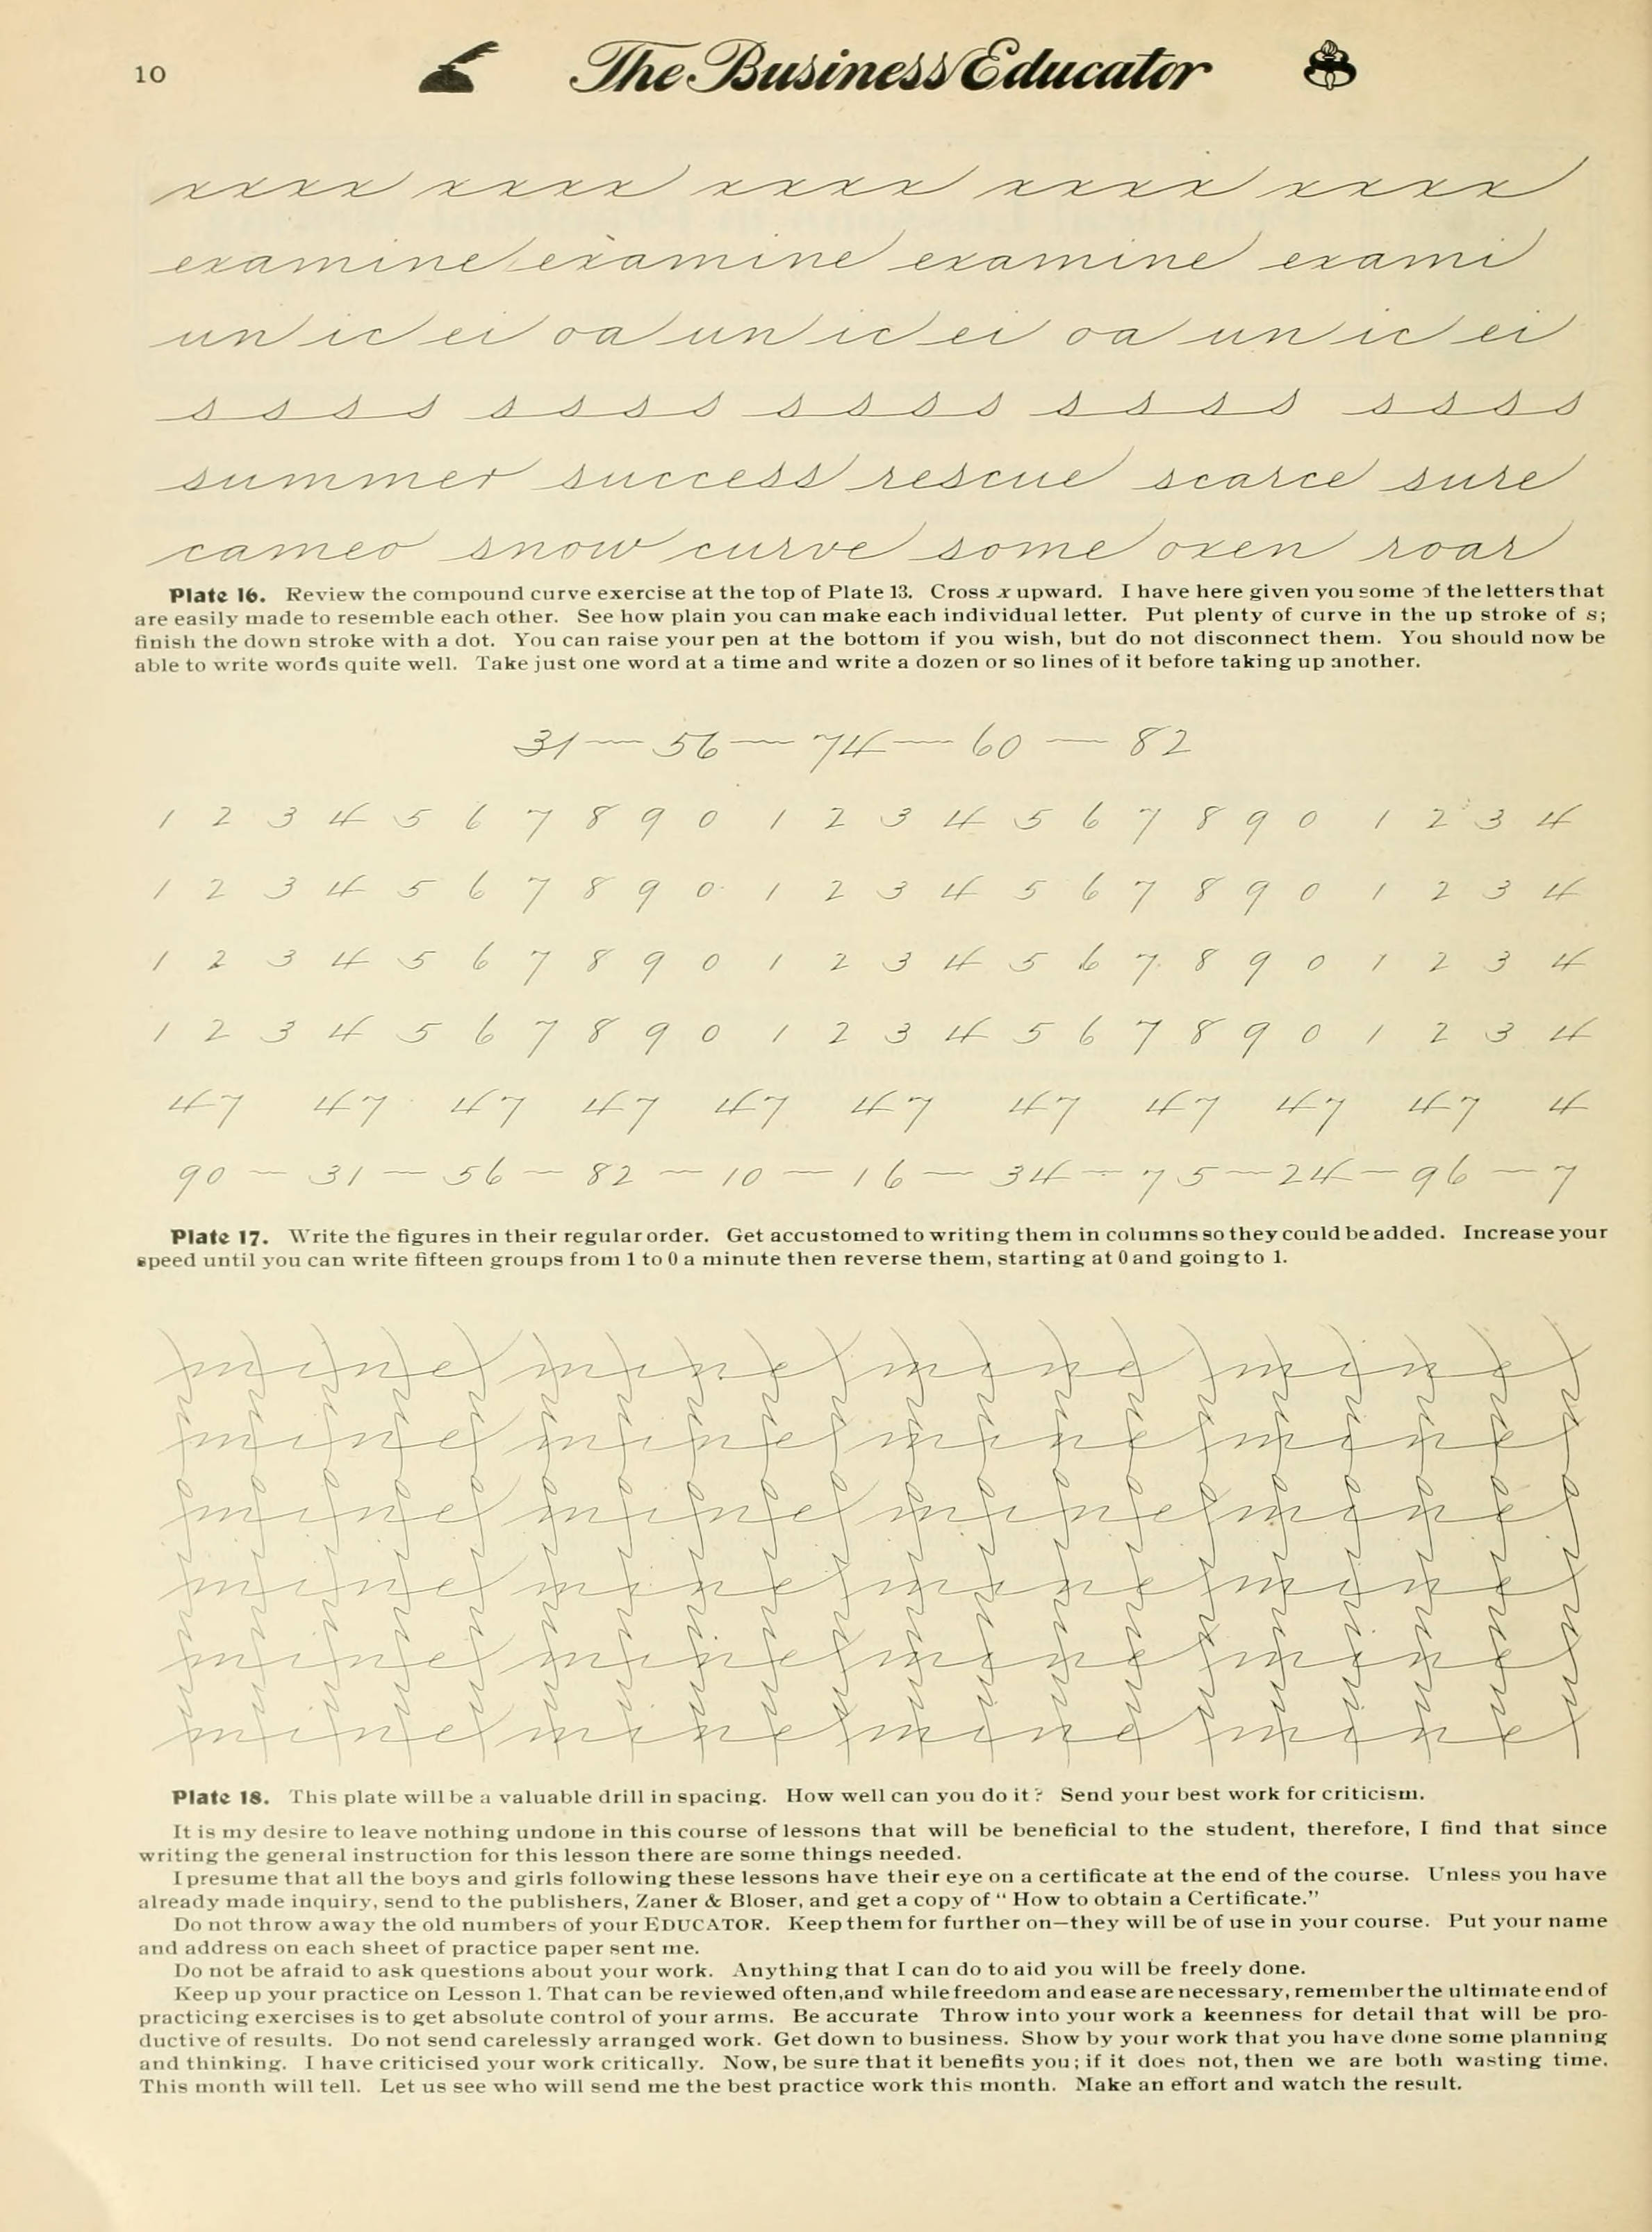 10 The Business Educator
xxxx xxxx xxxx xxxx xxxx
examine examine examine exami
un ic ei oa un ic ei oa un ic ei
s s s s s s s s s s s s s s s s s s s s
summer success rescue scarce sure
cameo snow curve some oxen roar
Plate 16. Review the compound curve exercise at the top of Plate 13. Cross x upward. I have here given you some of the letters that
are easily made to resemble each other. See how plain you can make each individual letter. Put plenty of curve in the up stroke of s;
finish the down stroke with a dot. You can raise your pen at the bottom if you wish, but do not disconnect them. You should now be
able to write words quite well. Take just one word at a time and write a dozen or so lines of it before taking up another.
31 — 56 — 74 — 60 — 82
1 2 3 4 5 6 7 8 9 0 1 2 3 4 5 6 7 8 9 0 1 2 3 4
1 2 3 4 5 6 7 8 9 0 1 2 3 4 5 6 7 8 9 0 1 2 3 4
1 2 3 4 5 6 7 8 9 0 1 2 3 4 5 6 7 8 9 0 1 2 3 4
1 2 3 4 5 6 7 8 9 0 1 2 3 4 5 6 7 8 9 0 1 2 3 4
47 47 47 47 47 47 47 47 47 47 4
90 — 31 — 56 — 82 — 10 — 16 — 34 — 75 — 24 — 96 — 7
Plate 17. Write the figures in their regular order. Get accustomed to writing them in columns so they could be added. Increase your
speed until you can write fifteen groups from 1 to 0 a minute then reverse them, starting at 0 and going to 1.
mine mine mine mine
mine mine mine mine
mine mine mine mine
mine mine mine mine
mine mine mine mine
mine mine mine mine
Plate 18. This plate will be a valuable drill in spacing. How well can you do it? Send your best work for criticism.
It is my desire to leave nothing undone in this course of lessons that will be beneficial to the student, therefore, I find that since
writing the general instruction for this lesson there are some things needed.
I presume that all the boys and girls following these lessons have their eye on a certificate at the end of the course. Unless you have
already made inquiry, send to the publishers, Zaner & Bloser, and get a copy of "How to obtain a Certificate."
Do not throw away the old numbers of your EDUCATOR. Keep them for further on—they will be of use in your course. Put your name
and address on each sheet of practice paper sent me.
Do not be afraid to ask questions about your work. Anything that I can do to aid you will be freely done.
Keep up your practice on Lesson 1. That can be reviewed often, and while freedom and ease are necessary, remember the ultimate end of
practicing exercises is to get absolute control of your arms. Be accurate Throw into your work a keenness for detail that will be pro-
ductive of results. Do not send carelessly arranged work. Get down to business. Show by your work that you have done some planning
and thinking. I have criticised your work critically. Now, be sure that it benefits you; if it does not, then we are both wasting time.
This month will tell. Let us see who will send me the best practice work this month. Make an effort and watch the result.